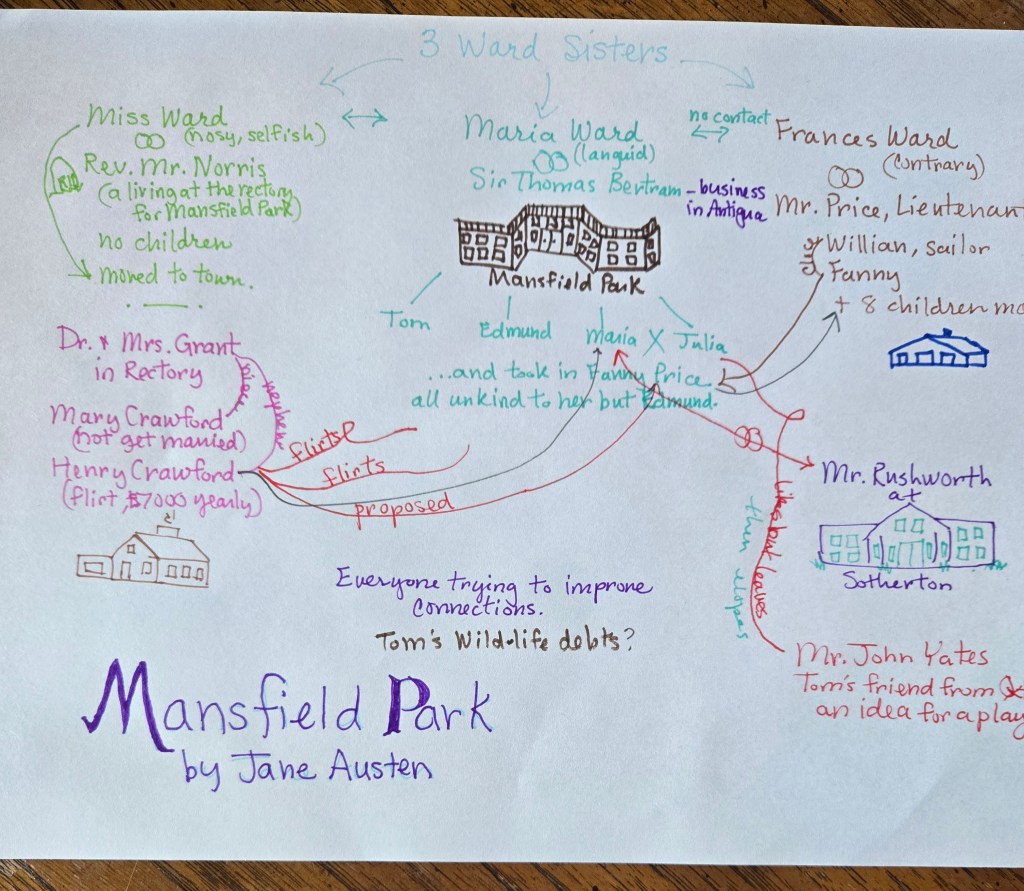 3 Ward Sisters
Miss Ward
(nosy, selfish)
Rev. Mr. Norris
(a living at the rectory
for Mansfield Park)
no children
moved to town.
Maria Ward
(languid)
Sir Thomas Bertram
- business
in Antigua
Mansfield Park
Tom
Edmund
Maria X Julia
...and took in Fanny Price
all unkind to her but Edmund.
no contact
Frances Ward
(contrary)
Mr. Price, Lieutenan
Willian, sailor
Fanny
+ 8 children mo
Dr. & Mrs. Grant
in Rectory
niece
nephew
Mary Crawford
(not get married)
Henry Crawford
(flirt, $7000 yearly)
flirts
flirts
proposed
Mr. Rushworth
at
Sotherton
likes but leaves
then elopes
Mr. John Yates
Tom's friend from
an idea for a play
Everyone trying to improve
connections.
Tom's Wild-life debts?
Mansfield Park
by Jane Austen